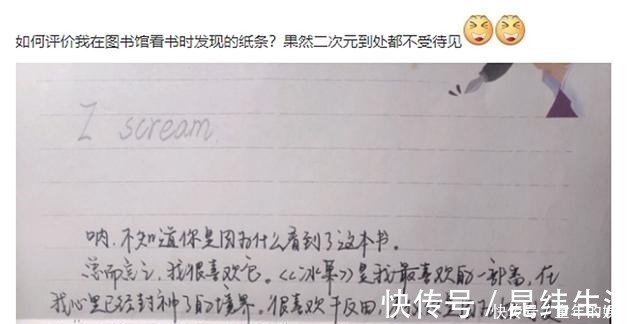 如何评价我在图书馆看书时发现的纸条?果然二次元到处都不受待见
I scream
呐,不知道你是因为什么看到了这本书。
总而言之,我很喜欢它。《冰菓》是我最喜欢的一部番,在
我心里已经封神了的境界。很喜欢千反田,
快传号